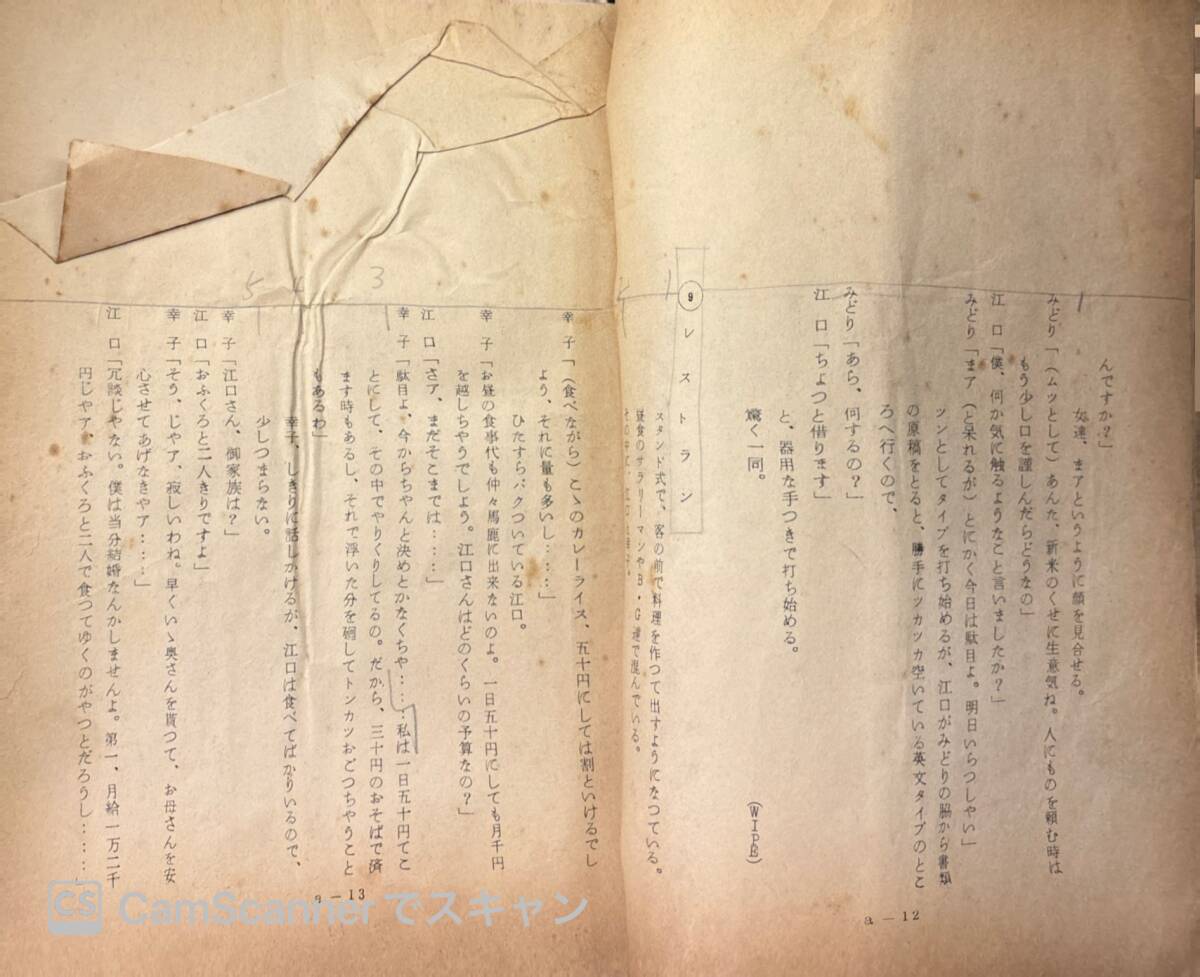 んですか？」
女達、まアというように顔を見合せる。
みどり「（ムッとして）あんた、新米のくせに生意気ね。人にものを頼む時は
もう少し口を謹しんだらどうなの」
江　口「僕、何か気に触るようなこと言いましたか？」
みどり「まア（と呆れるが）とにかく今日は駄目よ。明日いらつしやい」
ツンとしてタイプを打ち始めるが、江口がみどりの脇から書類
の原稿をとると、勝手にツカツカ空いている英文タイプのとこ
ろへ行くので、
みどり「あら、何するの？」
江　口「ちよつと借ります」
と、器用な手つきで打ち始める。
驚く一同。
（WIPE）
1
9　レストラン
スタンド式で、客の前で料理を作つて出すようになつている。
昼食のサラリーマンやB・G達で混んでいる。
a－12
幸　子「（食べながら）こゝのカレーライス、五十円にしては割といけるでし
よう、それに量も多いし‥‥」
ひたすらパクついている江口。
幸　子「お昼の食事代も仲々馬鹿に出来ないのよ。一日五十円にしても月千円
を越しちやうでしよう。江口さんはどのくらいの予算なの？」
江　口「さア、まだそこまでは‥‥」
幸　子「駄目よ、今からちやんと決めとかなくちや‥‥私は一日五十円てこ
とにして、その中でやりくりしてるの。だから、三十円のおそばで済
ます時もあるし、それで浮いた分を廻してトンカツおごつちやうこと
もあるわ」
幸子、しきりに話しかけるが、江口は食べてばかりいるので、
少しつまらない。
幸　子「江口さん、御家族は？」
江　口「おふくろと二人きりですよ」
幸　子「そう、じやア、寂しいわね。早くいゝ奥さんを貰つて、お母さんを安
心させてあげなきやア‥‥」
江　口「冗談じやない。僕は当分結婚なんかしませんよ。第一、月給一万二千
円じやア、おふくろと二人で食つてゆくのがやつとだろうし‥‥‥
3
4
5
a－13
CS CamScannerでスキャン